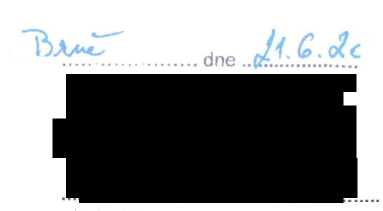 Brně dne 21.6.2